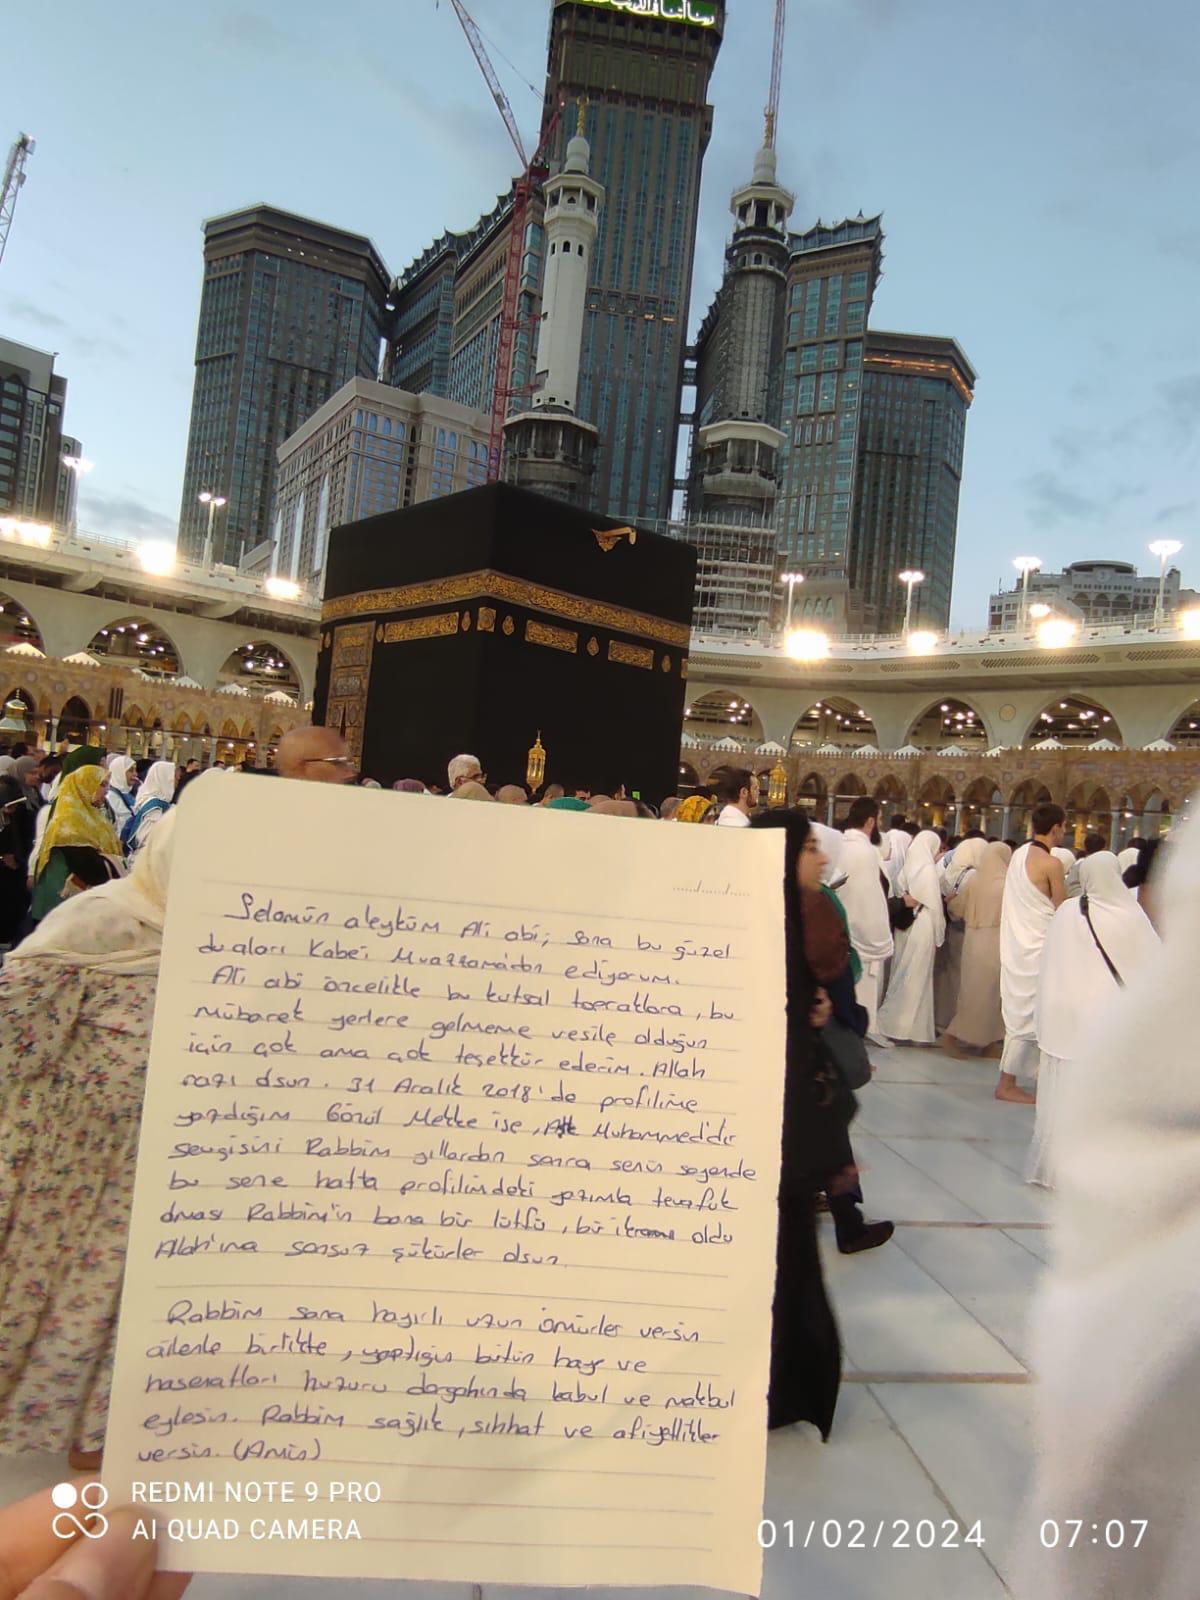 Selamün aleyküm Ali abi; sana bu güzel
duaları Kabe'i Muazzama'dan ediyorum.
Ali abi öncelikle bu kutsal topraklara, bu
mübarek yerlere gelmeme vesile olduğun
için çok ama çok teşekkür ederim. Allah
razı olsun. 31 Aralık 2018'de profilime
yazdığım Gönül Mekke ise, Aşk Muhammed'dir
sevgisini Rabbim yıllardan sonra senin sayende
bu sene hatta profilimdeki yazımla tevafuk
olması Rabbim'in bana bir lütfu, bir ikramı oldu
Allah'ıma sonsuz şükürler olsun.
Rabbim sana hayırlı uzun ömürler versin
ailenle birlikte, yaptığın bütün hayr ve
hasenatları huzuru dergahında kabul ve makbul
eylesin. Rabbim sağlık, sıhhat ve afiyetlikler
versin. (Amin)
REDMI NOTE 9 PRO
AI QUAD CAMERA
01/02/2024 07:07